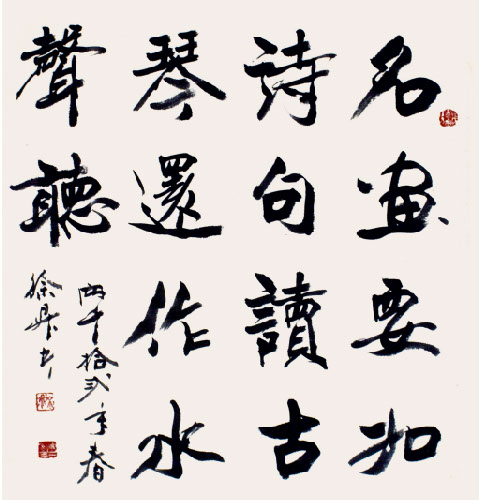 名畫要如
詩句讀古
琴還作水
聲聽
兩千拾弍年春
徐